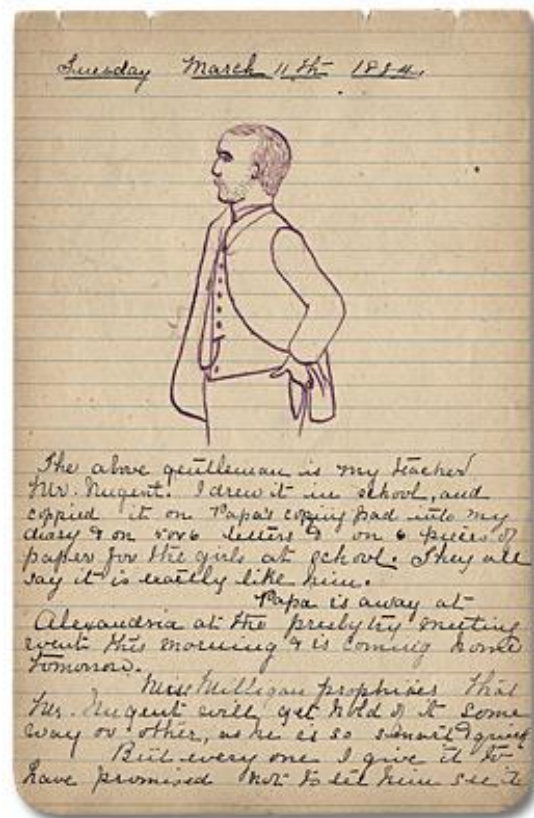 Tuesday March 11th 1884.
The above gentleman is my teacher
Mr. Nugent. I drew it in school, and
coppied it on Papa's coping pad into my
diary & on 5 or 6 letters & on 6 pieces of
paper for the girls at school. They all
say it is exactly like him.
Papa is away at
Alexandria at the presbytry meeting
went this morning & is coming home
tomorrow.
Miss Milligan prophisies that
Mr. Nugent will get hold of it some
way or other, as he is so smart & quick
But every one I give it to
have promised not to let him see it